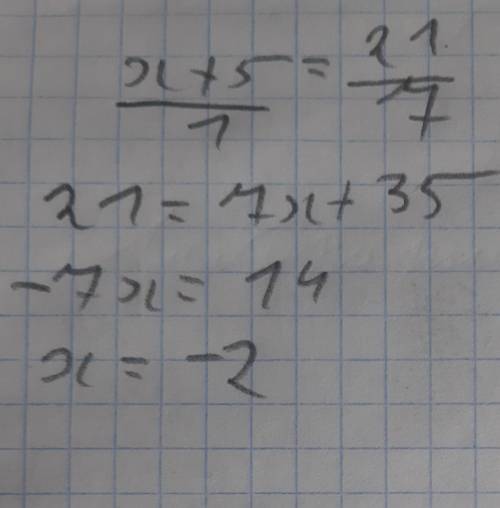 x+5/1 = 21/7
21 = 7x + 35
-7x = 14
x = -2